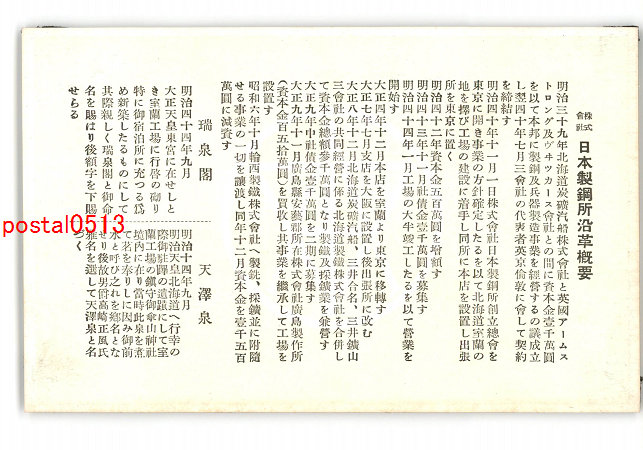 株式會社 日本製鋼所沿革概要
明治三十九年北海道炭礦汽船株式會社と英國アームス
トロング及ヴヰツカース會社との間に資本金壹千萬圓
を以て本邦に製鋼及兵器製造事業を經營するの議成立
し翌四十年七月三會社の代表者英京倫敦に會して契約
を締結す
明治四十年十一月一日株式會社日本製鋼所創立總會を
東京に開き事業の方針確定したるを以て北海道室蘭の
地を擇び工場の建設に着手し同所に本店を設置し出張
所を東京に置く
明治四十二年資本金五百萬圓を增額す
明治四十三年十一月社債金壹千萬圓を募集す
明治四十四年一月工場の大半竣工したるを以て營業を
開始す
大正四年十二月本店を室蘭より東京に移轉す
大正七年七月支店を大阪に設置し後出張所に改む
大正八年十二月北海道炭礦汽船、三井合名、三井鑛山
三會社の共同經營に係る北海道製鐵株式會社を合併し
て資本金總額參千萬圓となり製鐵及採鑛業を兼營す
大正九年中社債金壹千萬圓を二期に募集す
大正九年十一月廣島縣安藝郡所在株式會社廣島製作所
(資本金百五十萬圓)を買收し其事業を繼承して工場を
設置す
昭和六年十月輪西製鐵株式會社へ製銑、採鑛並に附隨
せる事業の一切を讓渡し同年十二月資本金を壹千五百
萬圓に減資す
瑞泉閣
明治四十四年九月
大正天皇東宮に在せしと
き室蘭工場に行啓の砌り
特に御宿泊所に充つる爲
め新築したるものにして
其際親しく瑞泉閣と御命
名を賜はり後額字を下賜
せらる
天澤泉
明治十四年九月
明治天皇北海道へ行幸の
際御駐蹕の遺蹟にして室
蘭工場の鎭守御傘山神社
境内に在り當時此泉を煮
て茗を奉りしに因み御前
水と呼び之れを鄕名とな
せり後故男爵高崎正風氏
雅名を選して天澤泉と名
づく
postal0513